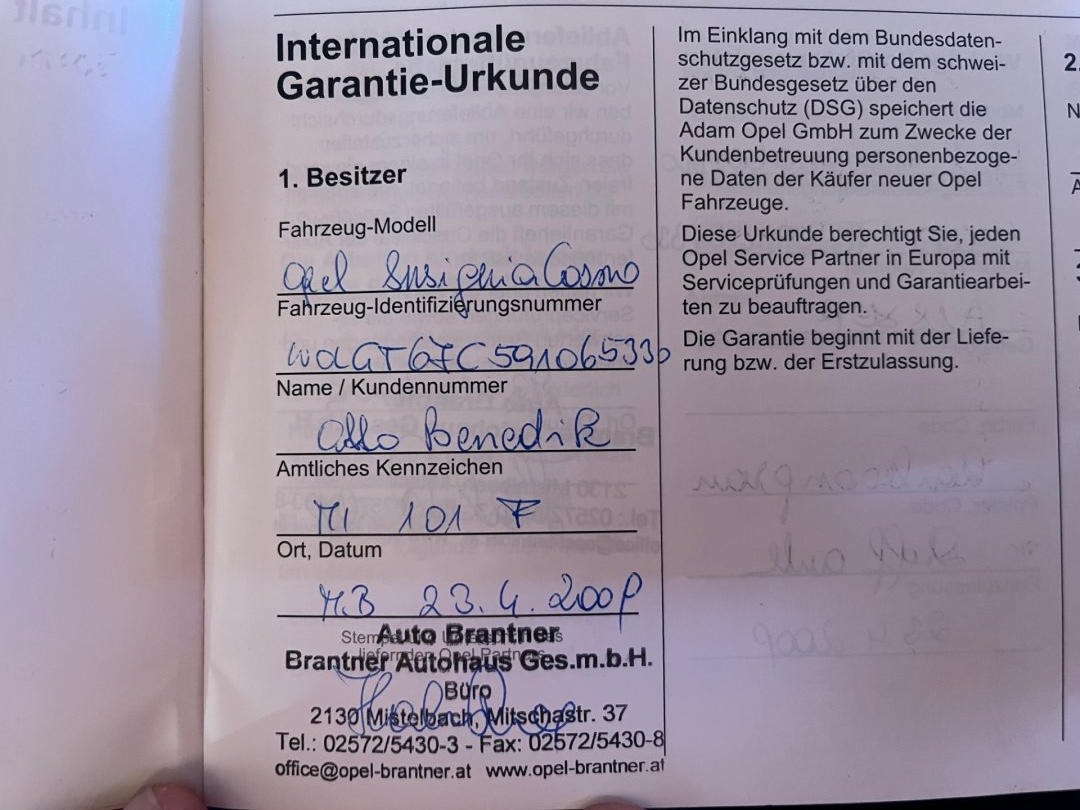 Internationale
Garantie-Urkunde
1. Besitzer
Fahrzeug-Modell
Opel Insignia Cosmo
Fahrzeug-Identifizierungsnummer
Name / Kundennummer
Otto Benedik
Amtliches Kennzeichen
MI 101 F
Ort, Datum
M.B 23.4.2009
Auto Brantner
liefernden Opel Partners
Brantner Autohaus Ges.m.b.H.
Büro
2130 Mistelbach, Mitschastr. 37
Tel.: 02572/5430-3 - Fax: 02572/5430-8
office@opel-brantner.at www.opel-brantner.at
Im Einklang mit dem Bundesdaten-
schutzgesetz bzw. mit dem schwei-
zer Bundesgesetz über den
Datenschutz (DSG) speichert die
Adam Opel GmbH zum Zwecke der
Kundenbetreuung personenbezoge-
ne Daten der Käufer neuer Opel
Fahrzeuge.
Diese Urkunde berechtigt Sie, jeden
Opel Service Partner in Europa mit
Serviceprüfungen und Garantiearbei-
ten zu beauftragen.
Die Garantie beginnt mit der Liefe-
rung bzw. der Erstzulassung.
2.
Inhalt